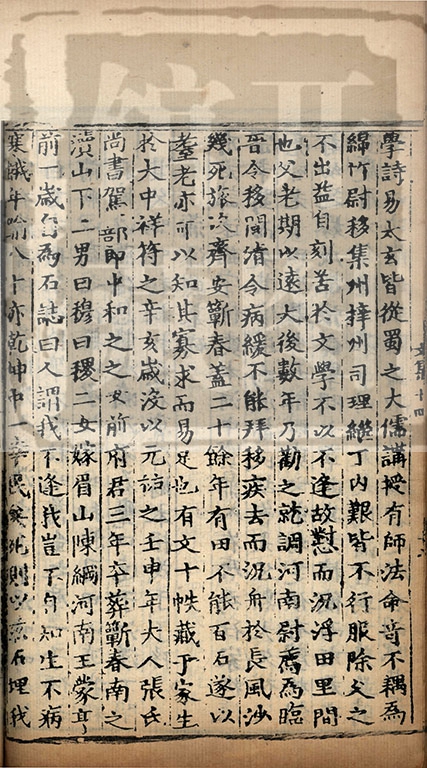 學詩易太玄皆從蜀之大儒講授有師法命奇不耦為
綿竹尉移集州擇州司理繼丁內艱皆不行服除久之
不出益自刻苦於文學不以不逢故懟而況浮田里間
也父老期以遠大後數年乃勸之就調河南尉薦為臨
晉令移閬清令病緩不能拜移疾去而況舟於長風沙
幾死旅次齊安蘄春蓋二十餘年有田不能百石遂以
耋老亦可以知其寡求而易足也有文十帙藏于家生
於大中祥符之辛亥歲沒以元祐之壬申年大人張氏
尚書駕部郎中和之之女前府君三年卒葬蘄春南之
濆山下二男曰穆曰稷二女嫁眉山陳綱河南王蒙亨
前一歲自為石誌曰人謂我不逢我豈不自知生不病
寒餓年八十亦乾坤中一幸民矣死則以誌石埋我
文集十四